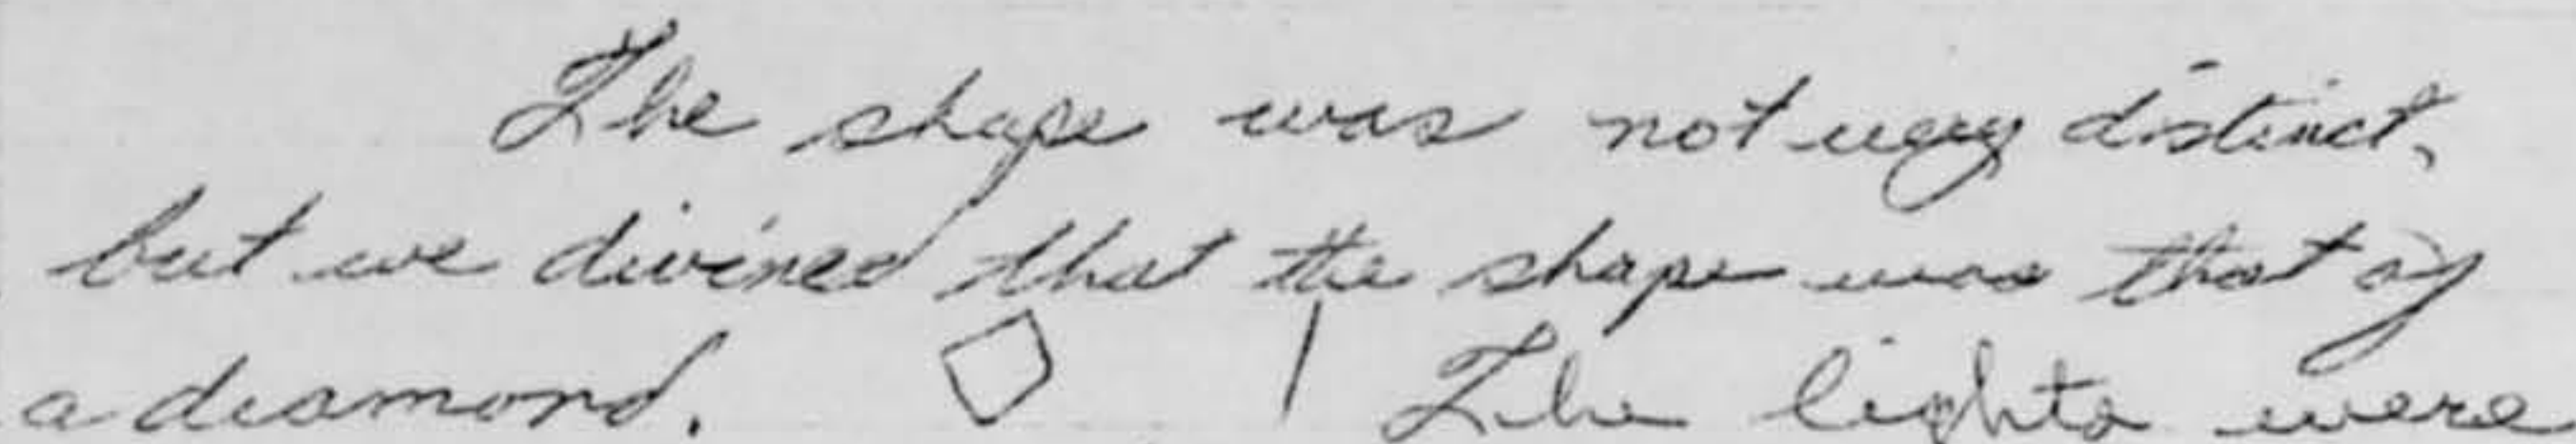 The shape was not very distinct,
but we divined that the shape was that of
a diamond. ◇ | The lights were